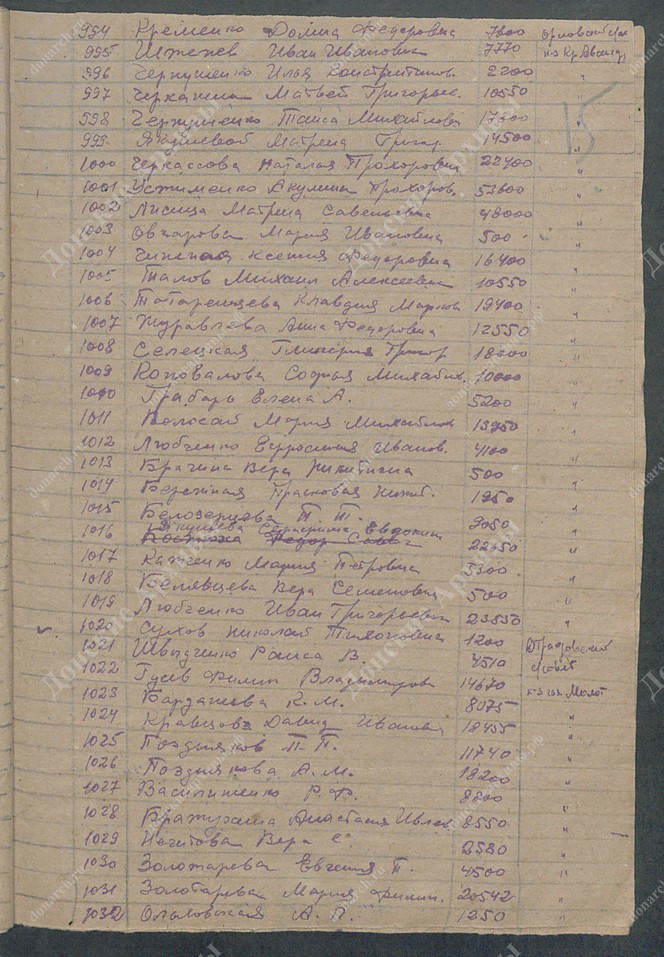 994 Кременко Домна Федоровна 7800
995 Иван Ивановна 7770
996 Чернушенко Илья Константинов. 2200 "
997 Матвей Григорьев. 10550 "
998 Таиса Михайлова 17300 "
999 Матрена Григор. 14500 "
1000 Черкассова Наталья Прохоровна 22400 "
1001 Устименко Акулина Прохоров. 53600 "
1002 Лисица Матрена Савельевна 48000 "
1003 Овчарова Мария Ивановна 500 "
1004 Ксения Федоровна 16400 "
1005 Талов Михаил Алексеевич 10550 "
1006 Татаренцева Клавдия Марков 19400 "
1007 Журавлева Анна Федоровна 12550 "
1008 Селецкая Гликерия Григор 18200 "
1009 Коновалова Софья Михайлов. 10000 "
1010 Грабарь Елена А. 5200 "
1011 Мария Михайлов 13750 "
1012 Любченко Ефросиния Иванов. 4100 "
1013 Брагина Вера Никитична 500 "
1014 Бережная Прасковья Никит. 1250 "
1015 Белозерцева П. П. 9050 "
1016 Евдоким 22550 "
1017 Мария Петровна 5300 "
1018 Белявцева Вера Семеновна 500 "
1019 Любченко Иван Григорьевич 23550 "
1020 Сухов Николай Тихонович 1200 "
1021 Швыдченко Раиса В. 4510 Отрадовский
1022 Гусев Филип Владимиров 14670
1023 Бардашева К. М. 8075 к-з им Молот
1024 Кравцова Давид Иванова 18455 "
1025 Поздняков П. П. 11740 "
1026 Позднякова А. М. 18200 "
1027 Василиженко Р. Ф. 8200 "
1028 Анастасия Ивлев 8550 "
1029 Нечитова Вера С. 2580 "
1030 Золотарева Евгения П. 4500 "
1031 Золотарева Мария Филип. 20542 "
1032 А. П. 1250 "